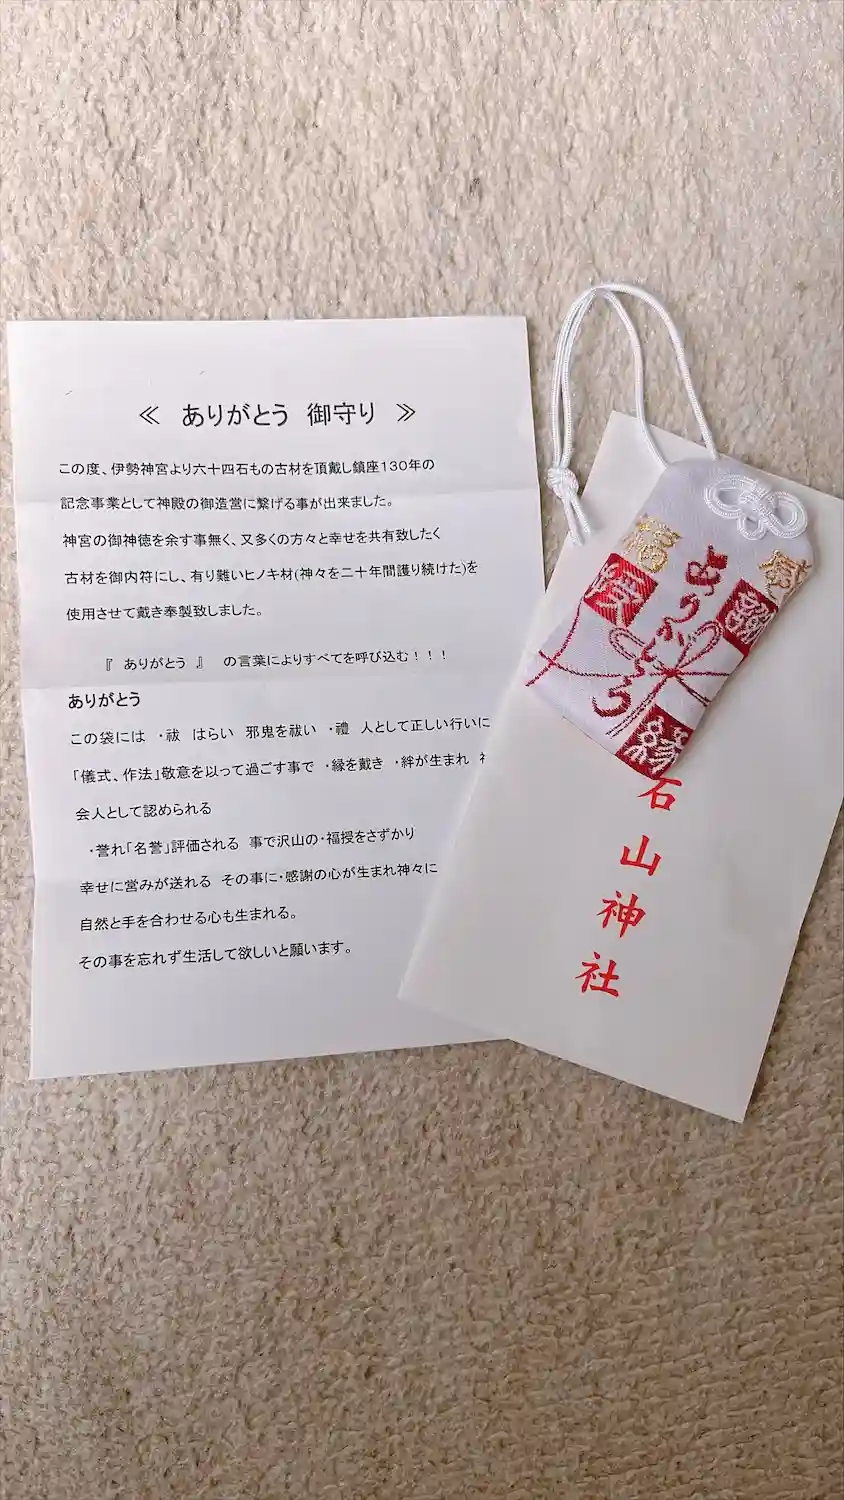 ≪ ありがとう 御守り ≫
この度、伊勢神宮より六十四石もの古材を頂戴し鎮座130年の
記念事業として神殿の御造営に繋げる事が出来ました。
神宮の御神徳を余す事無く、又多くの方々と幸せを共有致したく
古材を御内符にし、有り難いヒノキ材(神々を二十年間護り続けた)を
使用させて戴き奉製致しました。
『 ありがとう 』 の言葉によりすべてを呼び込む!!!
ありがとう
この袋には ・祓 はらい 邪鬼を祓い ・禮 人として正しい行いに
「儀式、作法」敬意を以って過ごす事で ・縁を戴き ・絆が生まれ
会人として認められる
・誉れ「名誉」評価される 事で沢山の・福授をさずかり
幸せに営みが送れる その事に・感謝の心が生まれ神々に
自然と手を合わせる心も生まれる。
その事を忘れず生活して欲しいと願います。
ありがとう
福
縁
石山神社